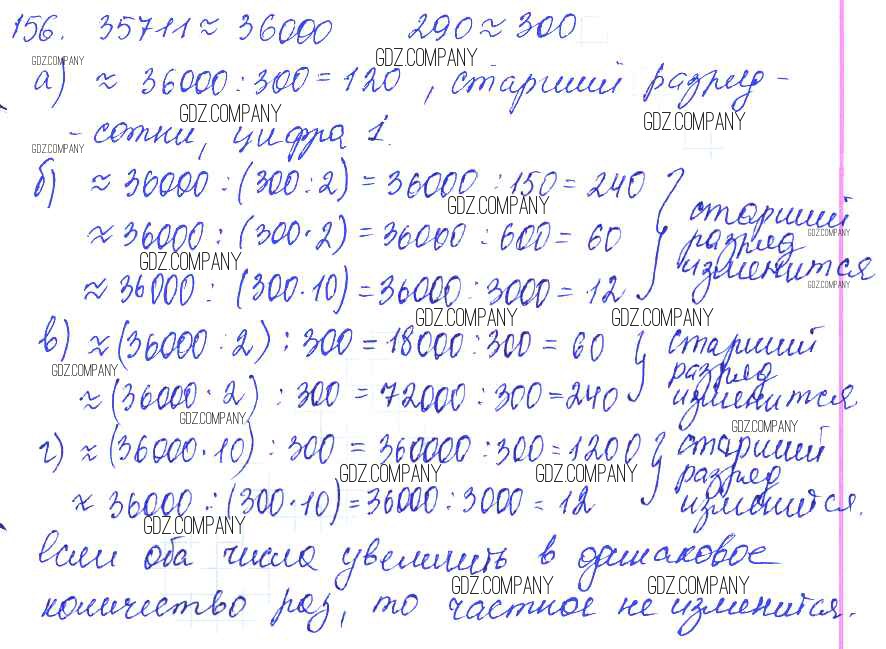 156. 35711 ≈ 36000 290 ≈ 300
GDZ.COMPANY GDZ.COMPANY
а) ≈ 36000 : 300 = 120 , старший разряд -
GDZ.COMPANY GDZ.COMPANY
- сотни, цифра 1.
GDZ.COMPANY
б) ≈ 36000 : (300 : 2) = 36000 : 150 = 240
GDZ.COMPANY
≈ 36000 : (300 · 2) = 36000 : 600 = 60
старший
разряд
изменится
GDZ.COMPANY
GDZ.COMPANY
≈ 36000 : (300 · 10) = 36000 : 3000 = 12
GDZ.COMPANY
GDZ.COMPANY GDZ.COMPANY
в) ≈ (36000 : 2) : 300 = 18000 : 300 = 60
GDZ.COMPANY
≈ (36000 · 2) : 300 = 72000 : 300 = 240
старший
разряд
изменится
GDZ.COMPANY GDZ.COMPANY
г) ≈ (36000 · 10) : 300 = 360000 : 300 = 1200
GDZ.COMPANY GDZ.COMPANY
≈ 36000 : (300 · 10) = 36000 : 3000 = 12
старший
разряд
изменится.
GDZ.COMPANY
Если оба числа увеличить в одинаковое
GDZ.COMPANY GDZ.COMPANY
количество раз, то частное не изменится.